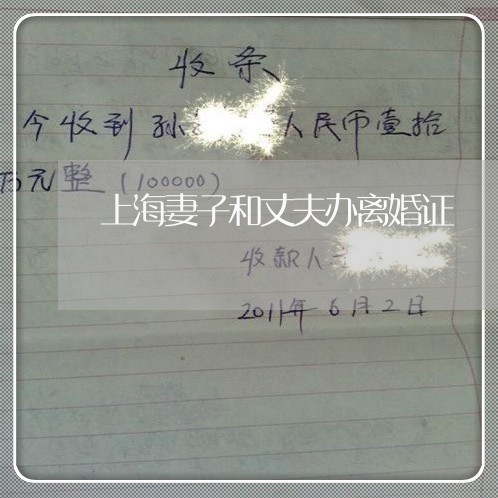 收条
今收到孙 人民币壹拾
万元整(100000)
上海妻子和丈夫办离婚证
收款人
2011年6月2日